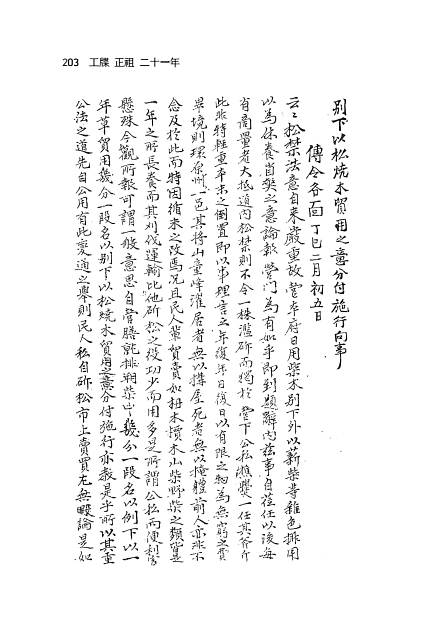 203 工牒 正祖 二十一年
別下以松燒木貿用之意分付施行向事
傳令各面 丁巳二月初五日
云云松禁法意自來嚴重故 營本府日用柴木別下外以薪柴等雜色排用
以爲休養省弊之意論報 營門爲有如乎即到題辭內玆事自莅任以後每
有商量者大抵道內松禁則不令一株濫斫而獨於 營下公私樵爨一任其斧斤
此非特輕重本末之倒置即以事理言之年復年日復日以有限之物爲無窮之費
畢境則環原州一邑其將山童峰濯居者無以構屋死者無以掩軆前人亦非不
念及於此而特因循未之改焉況且民人輩貿賣如杻木木山柴野柴之類皆是
一年之所長養而其刈伐運輸比他斫松之役功少而用多是所謂公私兩便利
懸殊今觀所報可謂一般意思自營膳排朔柴中幾分一段名以例下以一
年草貿用幾分一段名以別下以松燒木貿用之意分付施行亦敎是乎所以其重
公法之道先自公用有此變通之擧則民人私自斫松市上賣買尤無暇論是如